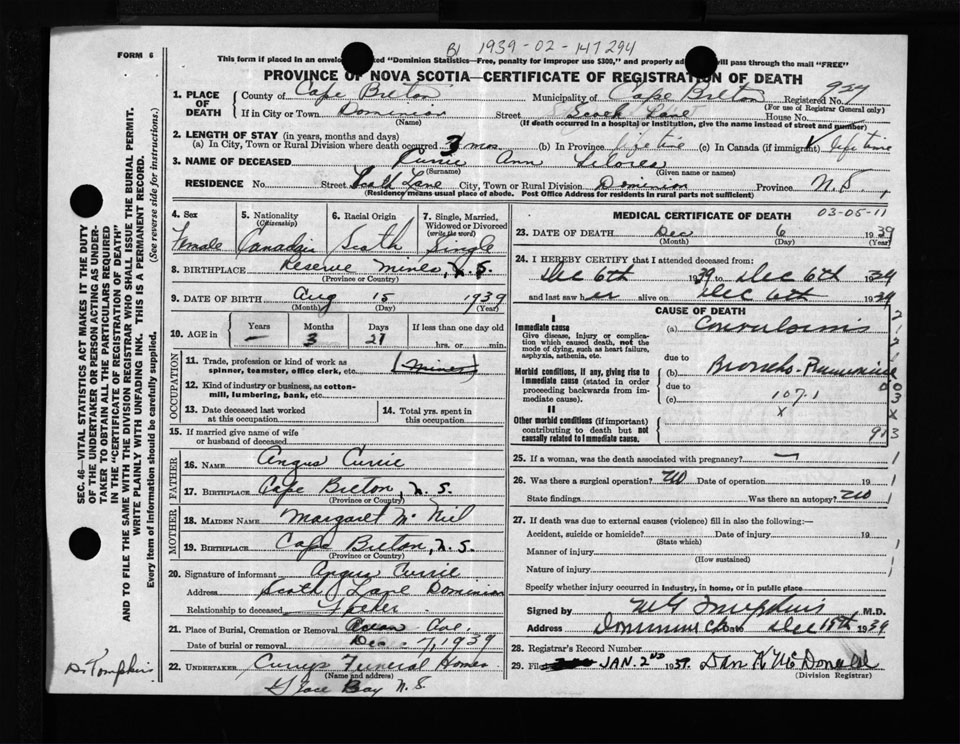 FORM 6
B1 1939-02-147294
This form if placed in an envelope marked "Dominion Statistics—Free, penalty for improper use $300," and properly addressed will pass through the mail "FREE"
PROVINCE OF NOVA SCOTIA—CERTIFICATE OF REGISTRATION OF DEATH
1. PLACE OF DEATH County of Cape Breton Municipality of Cape Breton Registered No. 924
(For use of Registrar General only)
If in City or Town Dominion Street South Lane House No.
(Name) (If death occurred in a hospital or institution, give the name instead of street and number)
2. LENGTH OF STAY (in years, months and days)
(a) In City, Town or Rural Division where death occurred 3 mos. (b) In Province life time (c) In Canada (if immigrant) life time
3. NAME OF DECEASED Currie Ann
(Surname) (Given name or names)
RESIDENCE No. Street South Lane City, Town or Rural Division Dominion Province N.S
(Residence means usual place of abode. Post Office Address for residents in rural parts not sufficient)
4. Sex Female
5. Nationality (Citizenship) Canadian
6. Racial Origin Scotch
7. Single, Married, Widowed or Divorced (write the word) Single
8. BIRTHPLACE Reserve Mines, N.S.
(Province or Country)
9. DATE OF BIRTH Aug 15 1939
(Month) (Day) (Year)
10. AGE in Years — Months 3 Days 21 If less than one day old
hrs. or min.
OCCUPATION
11. Trade, profession or kind of work as
spinner, teamster, office clerk, etc.
12. Kind of industry or business, as cotton-
mill, lumbering, bank, etc.
13. Date deceased last worked
at this occupation
14. Total yrs. spent in
this occupation
15. If married give name of wife
or husband of deceased
FATHER
16. NAME Angus Currie
17. BIRTHPLACE Cape Breton, N.S.
(Province or Country)
MOTHER
18. MAIDEN NAME Margaret McNeil
19. BIRTHPLACE Cape Breton, N.S.
(Province or Country)
20. Signature of informant Angus Currie
Address South Lane Dominion
Relationship to deceased Father
21. Place of Burial, Cremation or Removal
Date of burial or removal Dec 7, 1939
22. UNDERTAKER Currys Funeral Homes
(Name and address)
Glace Bay N.S.
MEDICAL CERTIFICATE OF DEATH 03-05-11
23. DATE OF DEATH Dec 6 1939
(Month) (Day) (Year)
24. I HEREBY CERTIFY that I attended deceased from:
Dec 6th 1939 to Dec 6th 1939
and last saw her alive on Dec 6th 1939
CAUSE OF DEATH
I
Immediate cause
Give disease, injury or complica-
tion which caused death, not the
mode of dying, such as heart failure,
asphyxia, asthenia, etc.
(a) Convulsions
due to
Morbid conditions, if any, giving rise to
immediate cause (stated in order
proceeding backwards from im-
mediate cause).
(b) Broncho-Pneumonia
due to
(c) 107.1
X
II
Other morbid conditions (if important)
contributing to death but not
causally related to immediate cause.
25. If a woman, was the death associated with pregnancy?
26. Was there a surgical operation? no Date of operation 19
State findings Was there an autopsy? no
27. If death was due to external causes (violence) fill in also the following:—
Accident, suicide or homicide? Date of injury 19
(State which)
Manner of injury
(How sustained)
Nature of injury
Specify whether injury occurred in industry, in home, or in public place
Signed by M.D.
Address Date Dec 15th 1939
28. Registrar's Record Number
29. Filed JAN. 2ND 1939. Dan K McDonald
(Division Registrar)
SEC. 46—VITAL STATISTICS ACT MAKES IT THE DUTY
OF THE UNDERTAKER OR PERSON ACTING AS UNDER-
TAKER TO OBTAIN ALL THE PARTICULARS REQUIRED
IN THE "CERTIFICATE OF REGISTRATION OF DEATH"
AND TO FILE THE SAME WITH THE DIVISION REGISTRAR WHO SHALL ISSUE THE BURIAL PERMIT.
WRITE PLAINLY WITH UNFADING INK. THIS IS A PERMANENT RECORD.
Every item of information should be carefully supplied. (See reverse side for instructions.)
Dr Tompkin